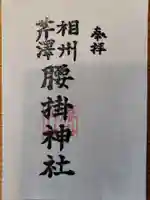 奉拝
相州
芹澤
腰掛神社